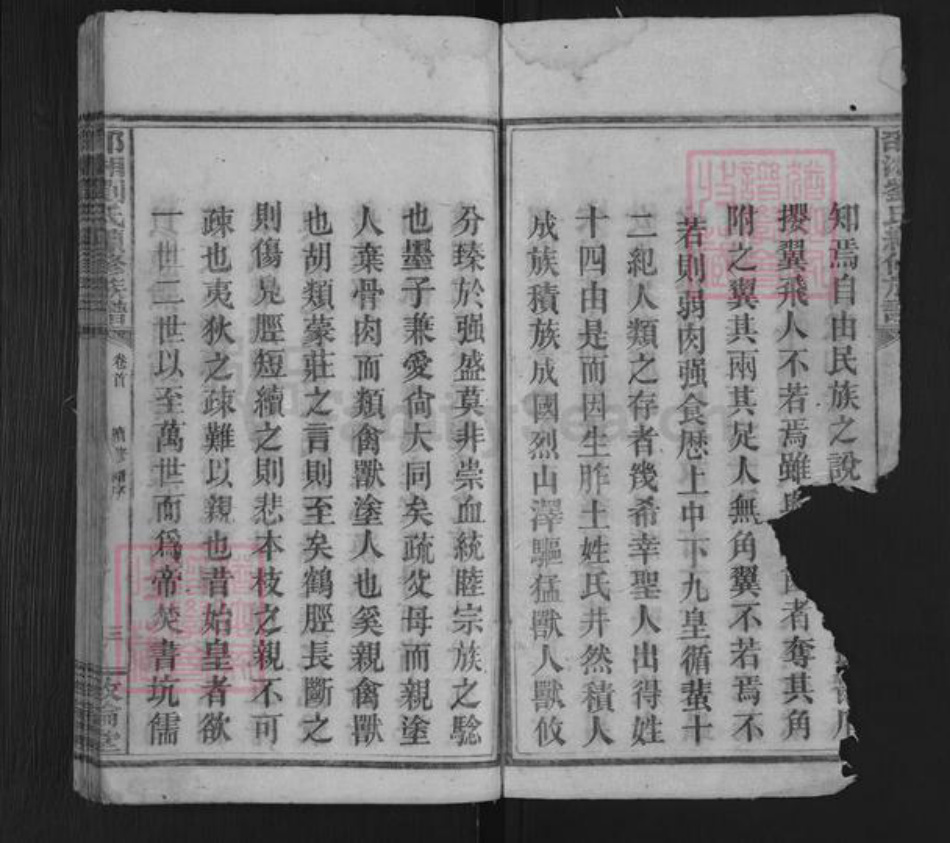 知焉自由民族之說
攖翼飛人不若焉雖 者奪其角
附之翼其兩其足人無角翼不若焉不
若則弱肉强食歴上中下九皇循蜚十
二紀人類之存者幾希幸聖人出得姓
十四由是而因生胙土姓氏井然積人
成族積族成國烈山澤驅猛獸人獸攸
分臻於强盛莫非崇血統睦宗族之騐
也墨子兼愛尙大同矣疏父母而親塗
人葉骨肉而類禽獸塗人也奚親禽獸
也胡類蒙莊之言則至矣鶴脛長斷之
則傷鳧脛短續之則悲本枝之親不可
疎也夷狄之疎難以親也昔始皇者欲
一世二世以至萬世而爲帝焚書坑儒
劉氏 修族譜
卷首
三
敦倫堂
FamilySearch